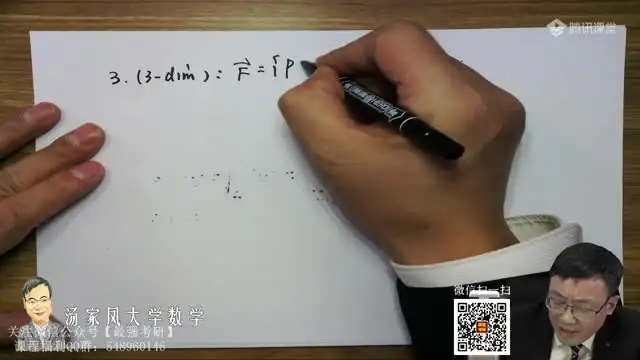 腾讯课堂
3. (3-dim): F⃗ = {P
微信扫一扫
汤家凤大学数学
关注微信公众号【最强考研】
课程福利QQ群：648960146